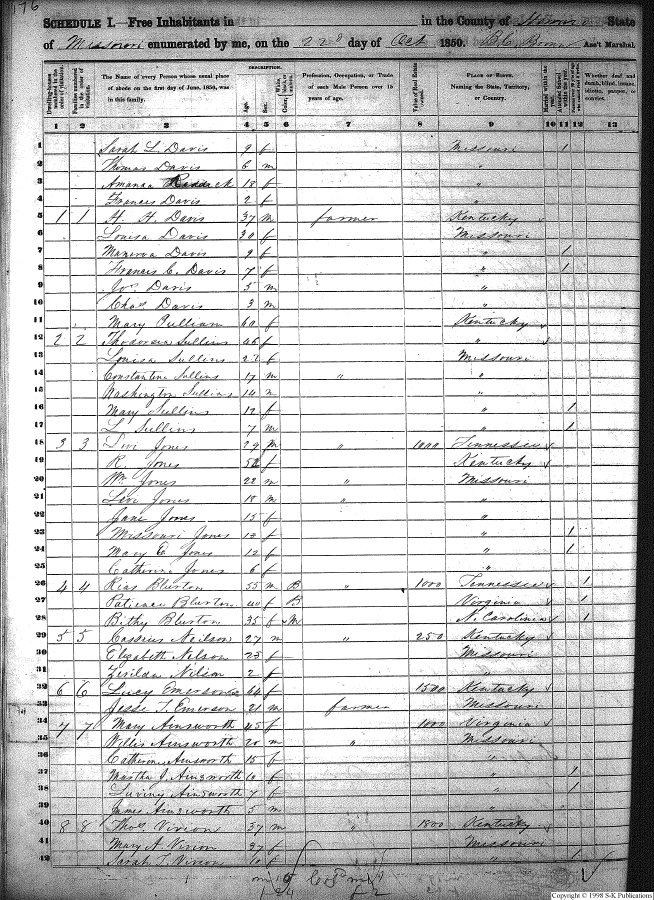 176
SCHEDULE I.—Free Inhabitants in in the County of State
of Missouri enumerated by me, on the 22 day of Oct 1850. Ass't Marshal.
DESCRIPTION.
Dwelling-houses numbered in the order of visitation.
Families numbered in the order of visitation.
The Name of every Person whose usual place of abode on the first day of June, 1850, was in this family.
Age.
Sex.
Color, White, black, or mulatto.
Profession, Occupation, or Trade of each Male Person over 15 years of age.
Value of Real Estate owned.
PLACE OF BIRTH. Naming the State, Territory, or Country.
Married within the year.
Attended School within the year.
Whether deaf and dumb, blind, insane, idiotic, pauper, or convict.
1 2 3 4 5 6 7 8 9 10 11 12 13
1 Sarah L. Davis 9 f Missouri 1
2 Thomas Davis 6 m "
3 Amanda 18 f "
4 Frances Davis 2 f "
5 1 1 H. H. Davis 37 m farmer Kentucky
6 Louisa Davis 30 f Missouri
7 Manerva Davis 9 f " 1
8 Francis C. Davis 7 f " 1
9 Jos Davis 5 m "
10 Chas Davis 3 m "
11 Mary Pulliam 60 f Kentucky
12 2 2 Thodorsia Sullins 46 f "
13 Louisa Sullins 22 f Missouri
14 Constantine Sullins 17 m " "
15 Washington Sullins 14 m "
16 Mary Sullins 12 f " 1
17 L Sullins 7 m " 1
18 3 3 Levi Jones 29 m " 1000 Tennessee
19 R. Jones 52 f Kentucky
20 Wm Jones 22 m " Missouri
21 Levi Jones 18 m " "
22 Jane Jones 15 f "
23 Missouri Jones 13 f " 1
24 Mary E Jones 12 f " 1
25 Catherine Jones 6 f "
26 4 4 Rias Blurton 55 m B " 1000 Tennessee 1
27 Patience Blurton 40 f B Virginia 1
28 Bithy Blurton 35 f M N. Carolina 1
29 5 5 Cassius Neilson 27 m " 250 Kentucky
30 Elizabeth Nelson 23 f Missouri
31 Zerilda Nelson 2 f "
32 6 6 Lucy Emerson 64 f 1500 Kentucky
33 Jesse T. Emerson 21 m farmer Missouri
34 7 7 Mary Ainsworth 45 f 1000 Virginia
35 Willis Ainsworth 20 m " Missouri
36 Catherine Ainsworth 15 f "
37 Martha J. Ainsworth 10 f " 1
38 Luviney Ainsworth 7 f " 1
39 James Ainsworth 5 m "
40 8 8 Thos Virion 37 m " 1800 Kentucky
41 Mary A Virion 37 f Missouri
42 Sarah T. Virion 10 f " 1
Copyright © 1998 S-K Publications